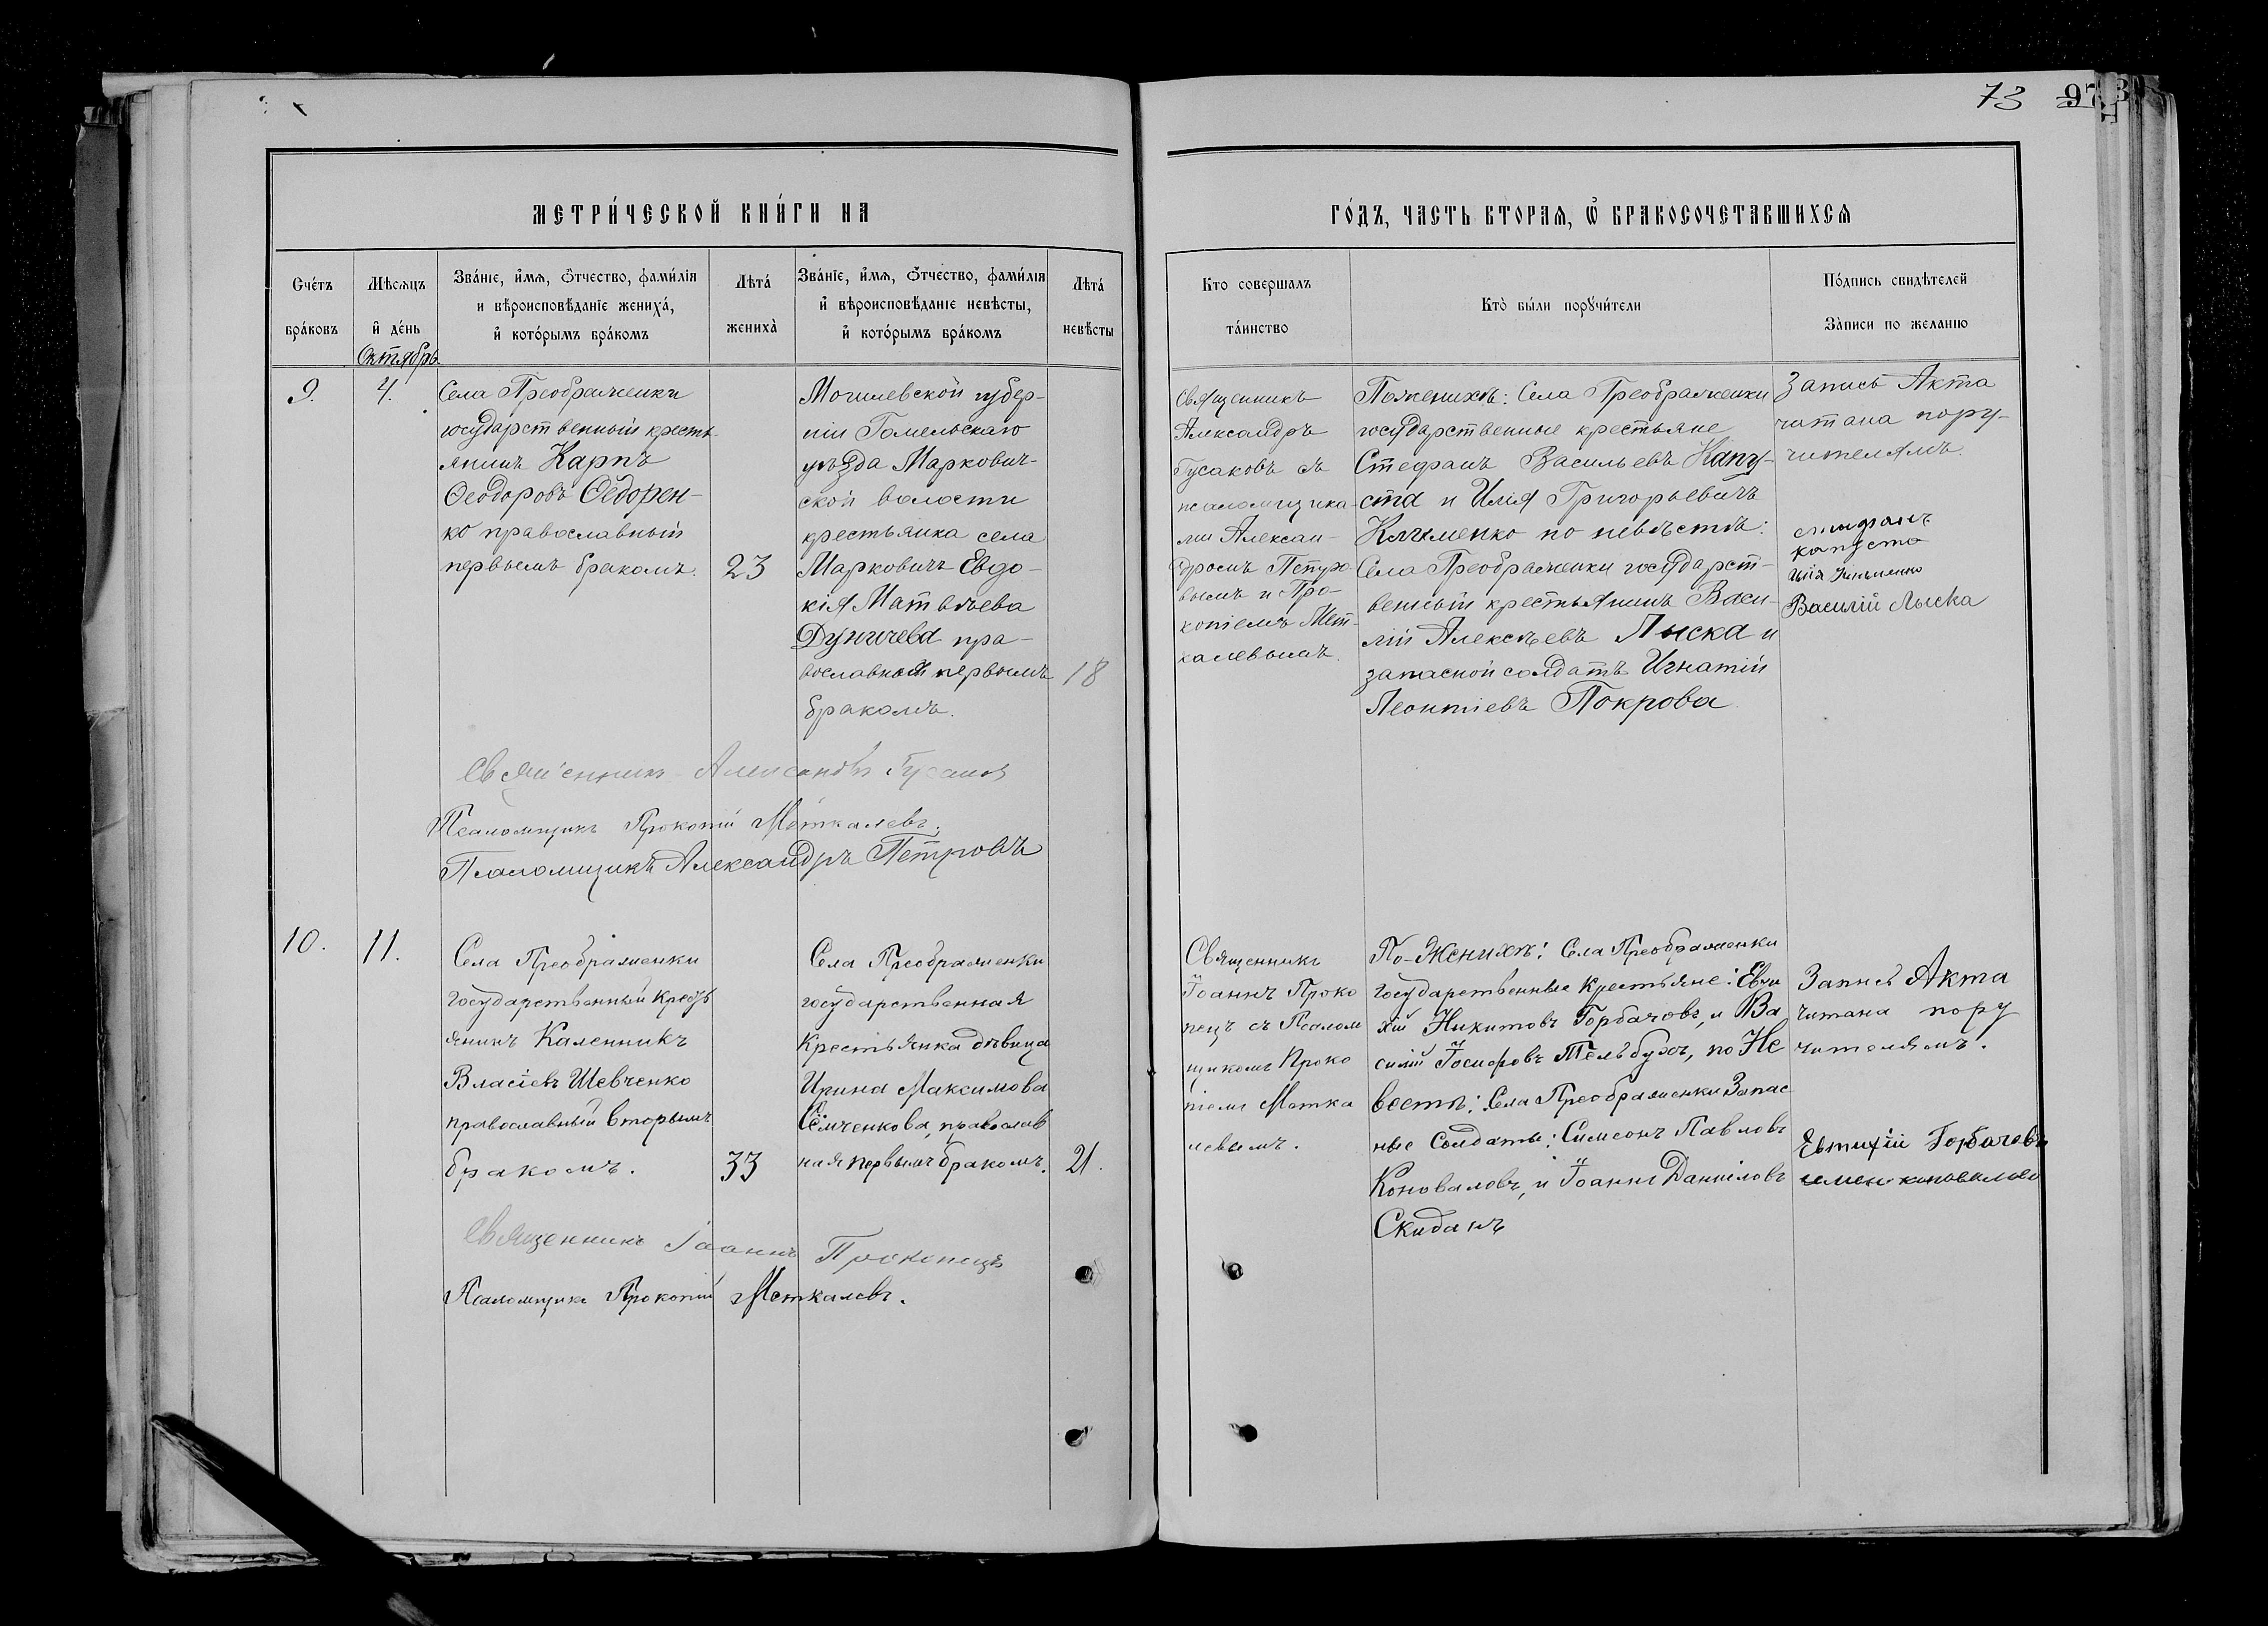 73 97
МЕТРИ́ЧЕСКОЙ КНИ́ГИ НА
ГО́ДЪ, ЧАСТЬ ВТОРАЯ, Ѿ БРАКОСОЧЕТАВШИХСЯ
Счётъ бра́ковъ
Мѣсяцъ и҆ де́нь
Октябрь
Зва́нїе, и҆́мя, ѻ҆́тчество, фами́лїя
и вѣроисповѣ́данїе жениха̀,
и҆ кото́рымъ бра́комъ
Лѣта̀
жениха̀
Зва́нїе, и҆́мя, ѻ҆́тчество, фами́лїя
и҆ вѣроисповѣ́данїе невѣ́сты,
и҆ кото́рымъ бра́комъ
Лѣта̀
невѣ́сты
Кто совершалъ
та́инство
Кто̀ бы́ли порꙋчи́тели
По́дпись свидѣ́телей
За̀писи по желанїю
9.
4.
Села Преображенки
государственный кресть-
янинъ Карпъ
Ѳеодоровъ Ѳедорен-
ко православный
первымъ бракомъ.
23
Могилевской губер-
ніи Гомельскаго
уѣзда Маркович-
ской волости
крестьянка села
Марковичъ Евдо-
кія Матвѣева
Дуничева пра-
вославная первымъ
бракомъ.
18
Священникъ
Александръ
Гусаковъ съ
псаломщика-
ми Алексан-
дромъ Петро-
вымъ и Про-
копіемъ Мет-
калевымъ.
По женихѣ: Села Преображенки
государственные крестьяне
Стефанъ Васильевъ Капу-
ста и Илія Григорьевичъ
Клименко по невѣстѣ:
Села Преображенки государст-
венный крестьянинъ Васи-
лій Алексѣевъ Лыска и
запасной солдатъ Игнатій
Леонтіевъ Покрова
Запись Акта
читана пору-
чителямъ.
капуста
Василій Лыска
Священникъ Александръ Гусаковъ
Псаломщикъ Прокопій Меткалевъ.
Псаломщикъ Александръ Петровъ
10.
11.
Села Преображенки
государственный кресть
янинъ Каленникъ
Власіевъ Шевченко
православный вторымъ
бракомъ.
33
Села Преображенки
государственная
крестьянка дѣвица
Ирина Максимова
Сёмченкова, православ
ная первымъ бракомъ.
21.
Священникъ
Іоаннъ Проко
пецъ съ Псалом
щикомъ Проко
піемъ Метка
левымъ.
По-Женихѣ: Села Преображенки
государственные крестьяне: Евти
хій Никитовъ Горбачовъ, и Ва
силій Іосифовъ Тельбухъ, по Не
вестѣ: Села Преображенки Запас
ные Солдаты: Симеонъ Павловъ
Коноваловъ, и Іоаннъ Даниловъ
Скиданъ
Запись Акта
читана пору
чителямъ.
Евтихій Горбачовъ
семен коновалов
Священникъ Іоаннъ Прокопецъ
Псаломщикъ Прокопій Меткалевъ.